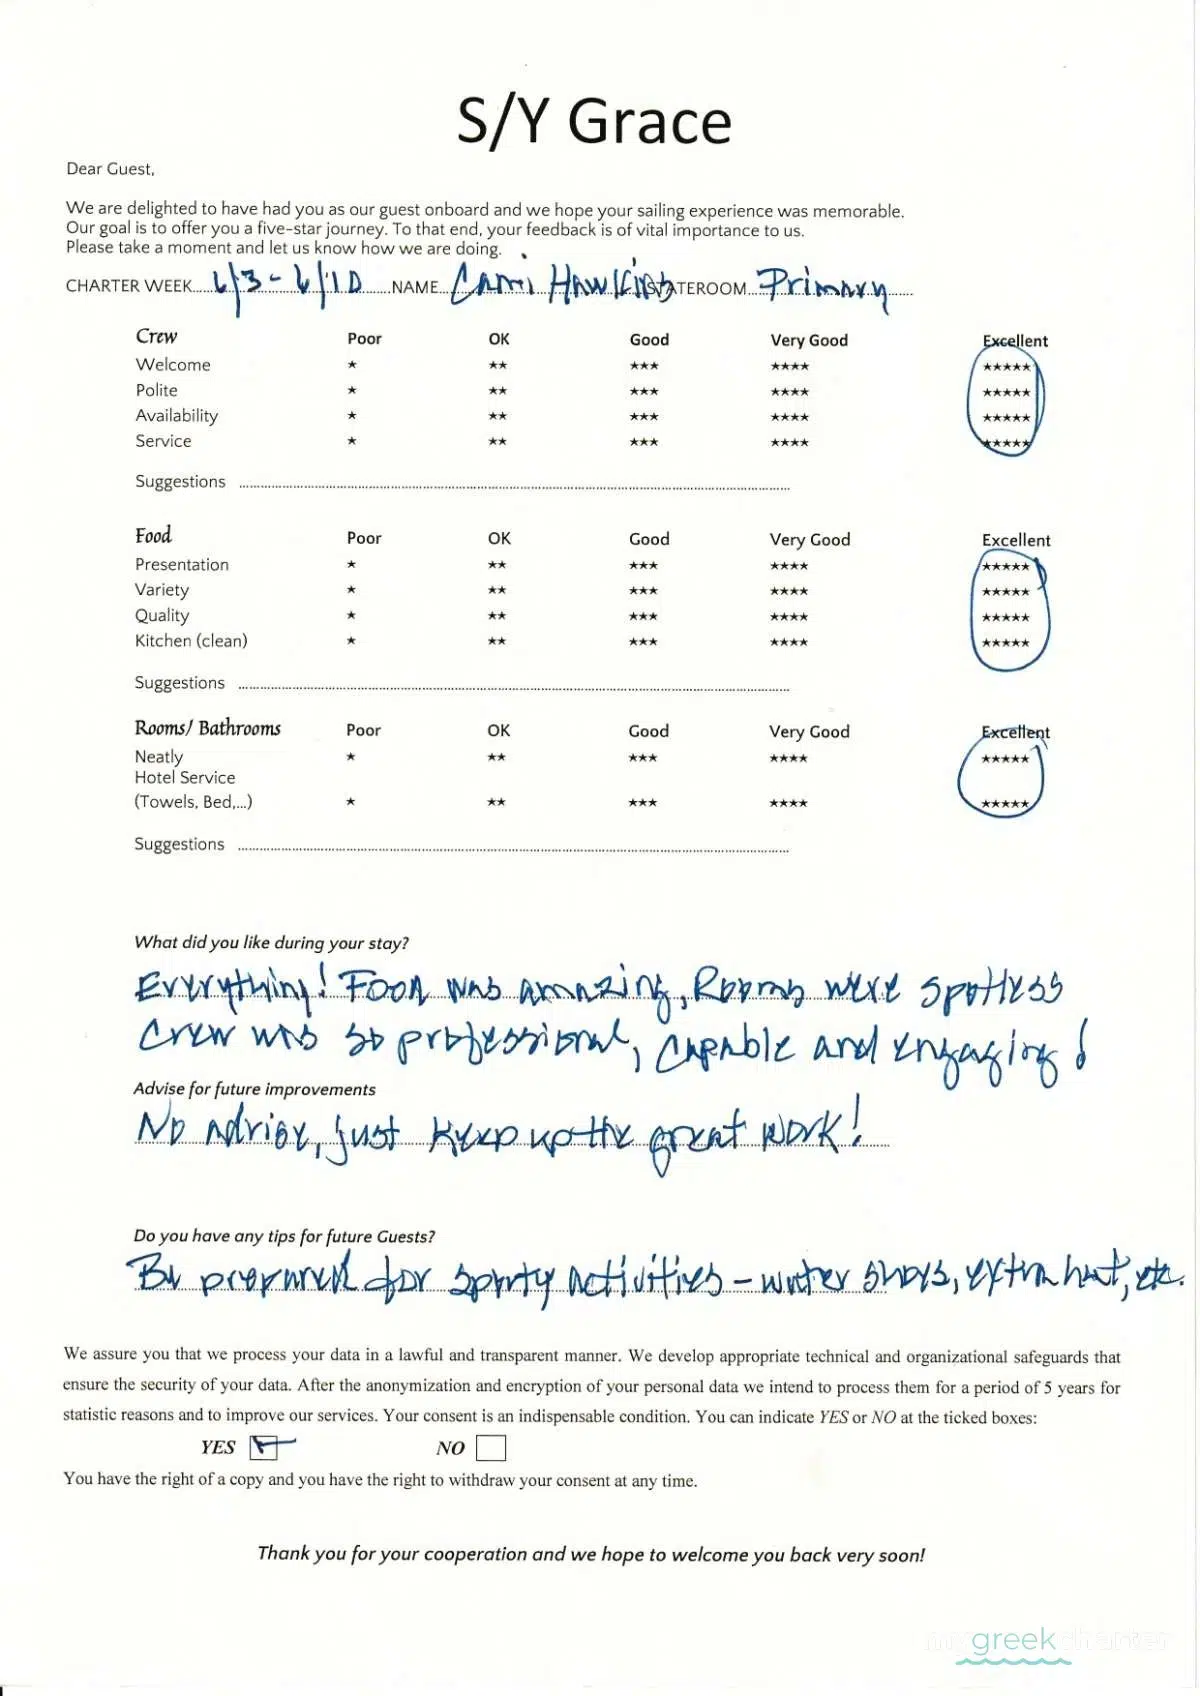 S/Y Grace
Dear Guest,
We are delighted to have had you as our guest onboard and we hope your sailing experience was memorable.
Our goal is to offer you a five-star journey. To that end, your feedback is of vital importance to us.
Please take a moment and let us know how we are doing.
CHARTER WEEK 6/3 - 6/10 NAME Cami Hawkins STATEROOM Primary
Crew Poor OK Good Very Good Excellent
Welcome ★ ★★ ★★★ ★★★★ ★★★★★
Polite ★ ★★ ★★★ ★★★★ ★★★★★
Availability ★ ★★ ★★★ ★★★★ ★★★★★
Service ★ ★★ ★★★ ★★★★ ★★★★★
Suggestions
Food Poor OK Good Very Good Excellent
Presentation ★ ★★ ★★★ ★★★★ ★★★★★
Variety ★ ★★ ★★★ ★★★★ ★★★★★
Quality ★ ★★ ★★★ ★★★★ ★★★★★
Kitchen (clean) ★ ★★ ★★★ ★★★★ ★★★★★
Suggestions
Rooms/ Bathrooms Poor OK Good Very Good Excellent
Neatly ★ ★★ ★★★ ★★★★ ★★★★★
Hotel Service
(Towels, Bed,...) ★ ★★ ★★★ ★★★★ ★★★★★
Suggestions
What did you like during your stay?
Everything! Food was amazing, Rooms were spotless
Crew was so professional, capable and engaging!
Advise for future improvements
No advice, just keep up the great work!
Do you have any tips for future Guests?
Be prepared for sporty activities - water shoes, extra hat, etc.
We assure you that we process your data in a lawful and transparent manner. We develop appropriate technical and organizational safeguards that
ensure the security of your data. After the anonymization and encryption of your personal data we intend to process them for a period of 5 years for
statistic reasons and to improve our services. Your consent is an indispensable condition. You can indicate YES or NO at the ticked boxes:
YES NO
You have the right of a copy and you have the right to withdraw your consent at any time.
Thank you for your cooperation and we hope to welcome you back very soon!
mygreekcharter